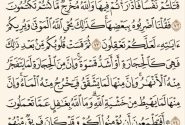 قَتَلْتُمْ نَفْسًا فَادَّارَأْتُمْ فِيهَا وَاللَّهُ مُخْرِجٌ مَا كُنْتُمْ تَكْتُمُونَ
فَقُلْنَا اضْرِبُوهُ بِبَعْضِهَا كَذَٰلِكَ يُحْيِي اللَّهُ الْمَوْتَىٰ وَيُرِيكُمْ
آيَاتِهِ لَعَلَّكُمْ تَعْقِلُونَ ثُمَّ قَسَتْ قُلُوبُكُمْ مِنْ بَعْدِ ذَٰلِكَ
فَهِيَ كَالْحِجَارَةِ أَوْ أَشَدُّ قَسْوَةً وَإِنَّ مِنَ الْحِجَارَةِ لَمَا يَتَفَجَّرُ
مِنْهُ الْأَنْهَارُ وَإِنَّ مِنْهَا لَمَا يَشَّقَّقُ فَيَخْرُجُ مِنْهُ الْمَاءُ وَإِنَّ
مِنْهَا لَمَا يَهْبِطُ مِنْ خَشْيَةِ اللَّهِ وَمَا اللَّهُ بِغَافِلٍ عَمَّا تَعْمَلُونَ